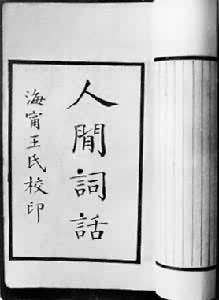 人間詞話
海甯王氏校印